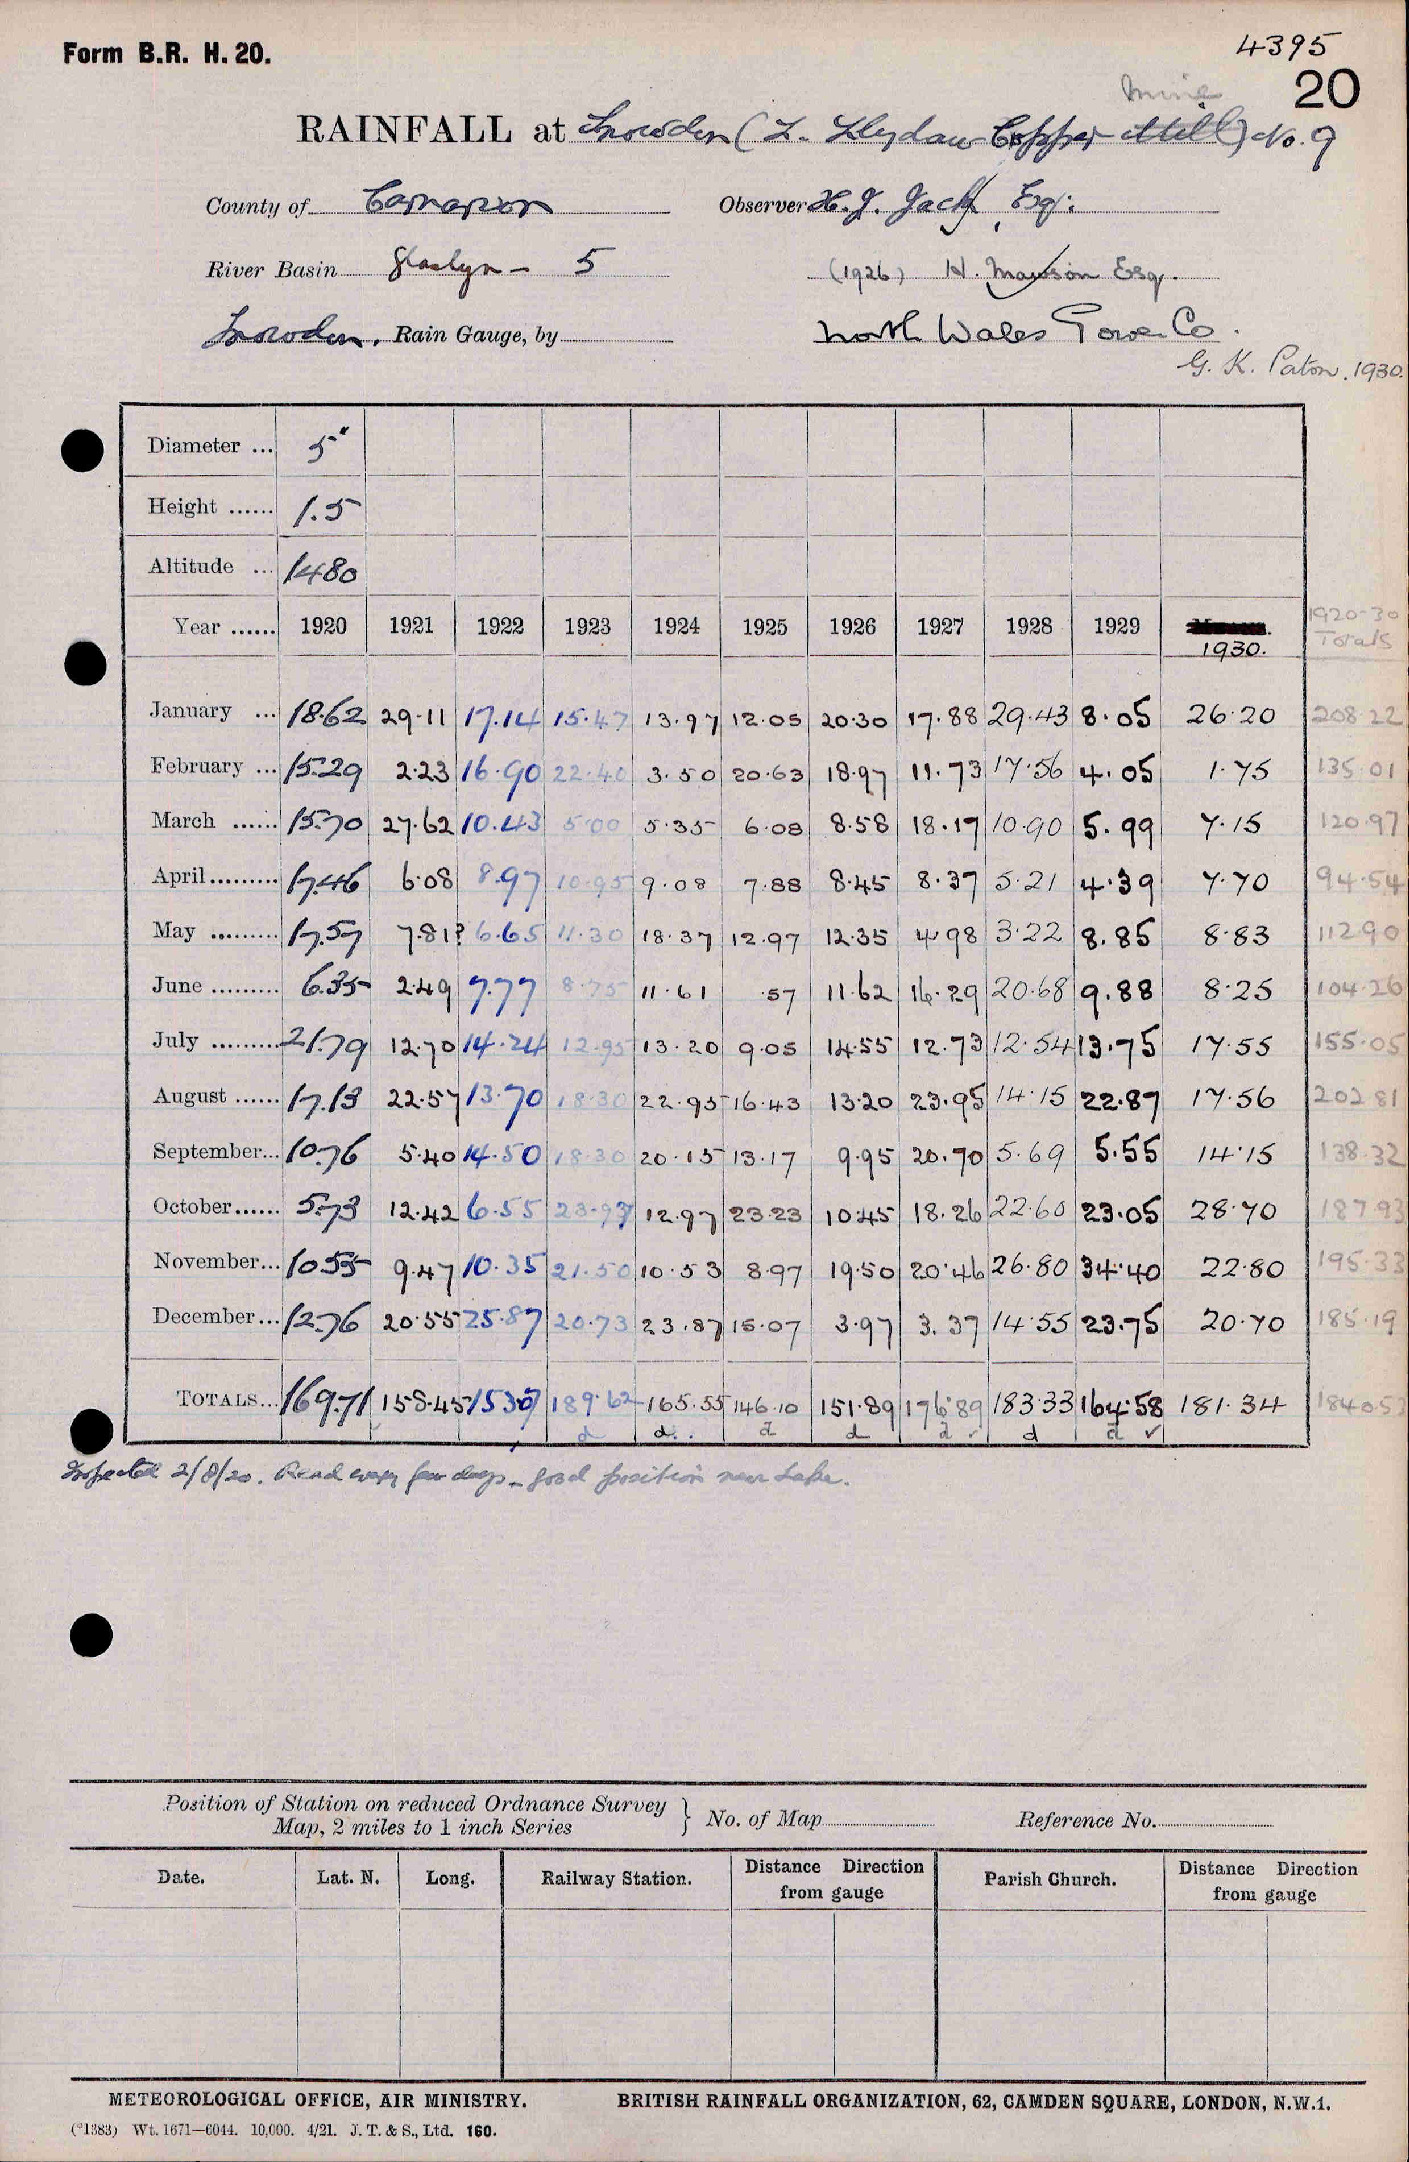 Form B.R. H. 20.
4395
20
mine
RAINFALL at Snowdon (L. Llydaw Copper Mill) No. 9
County of Carnarvon Observer H. J. Jack, Esq:
River Basin Glaslyn - 5 (1926) H. Mawson Esq.
Snowdon. Rain Gauge, by North Wales Power Co.
G. K. Paton. 1930.
Diameter ... 5"
Height ...... 1.5
Altitude ... 1480
Year ...... 1920 1921 1922 1923 1924 1925 1926 1927 1928 1929 1930. 1920-30 Totals
January ... 18.62 29.11 17.14 15.47 13.97 12.05 20.30 17.88 29.43 8.05 26.20 208.22
February ... 15.29 2.23 16.90 22.40 3.50 20.63 18.97 11.73 17.56 4.05 1.75 135.01
March ...... 15.70 27.62 10.43 5.00 5.35 6.08 8.58 18.17 10.90 5.99 7.15 120.97
April ......... 17.46 6.08 8.97 10.95 9.08 7.88 8.45 8.37 5.21 4.39 7.70 94.54
May ......... 17.57 7.81? 6.65 11.30 18.37 12.97 12.35 4.98 3.22 8.85 8.83 112.90
June ......... 6.35 2.49 7.77 8.75 11.61 .57 11.62 16.29 20.68 9.88 8.25 104.26
July ......... 21.79 12.70 14.24 12.95 13.20 9.05 14.55 12.73 12.54 13.75 17.55 155.05
August ...... 17.13 22.57 13.70 18.30 22.95 16.43 13.20 23.95 14.15 22.87 17.56 202.81
September... 10.76 5.40 14.50 18.30 20.15 13.17 9.95 20.70 5.69 5.55 14.15 138.32
October ...... 5.73 12.42 6.55 23.97 12.97 23.23 10.45 18.26 22.60 23.05 28.70 187.93
November... 10.55 9.47 10.35 21.50 10.53 8.97 19.50 20.46 26.80 34.40 22.80 195.33
December... 12.76 20.55 25.87 20.73 23.87 15.07 3.97 3.37 14.55 23.75 20.70 185.19
TOTALS... 169.71 158.45 153.07 189.62 165.55 146.10 151.89 176.89 183.33 164.58 181.34 1840.53
d d.. d d d ✓ d d ✓
Inspected 2/8/20. Read every few days - good position near Lake.
Position of Station on reduced Ordnance Survey
Map, 2 miles to 1 inch Series } No. of Map Reference No.
Date. Lat. N. Long. Railway Station. Distance Direction from gauge Parish Church. Distance Direction from gauge
METEOROLOGICAL OFFICE, AIR MINISTRY. BRITISH RAINFALL ORGANIZATION, 62, CAMDEN SQUARE, LONDON, N.W.1.
(*1383) Wt. 1671—6044. 10,000. 4/21. J. T. & S., Ltd. 160.